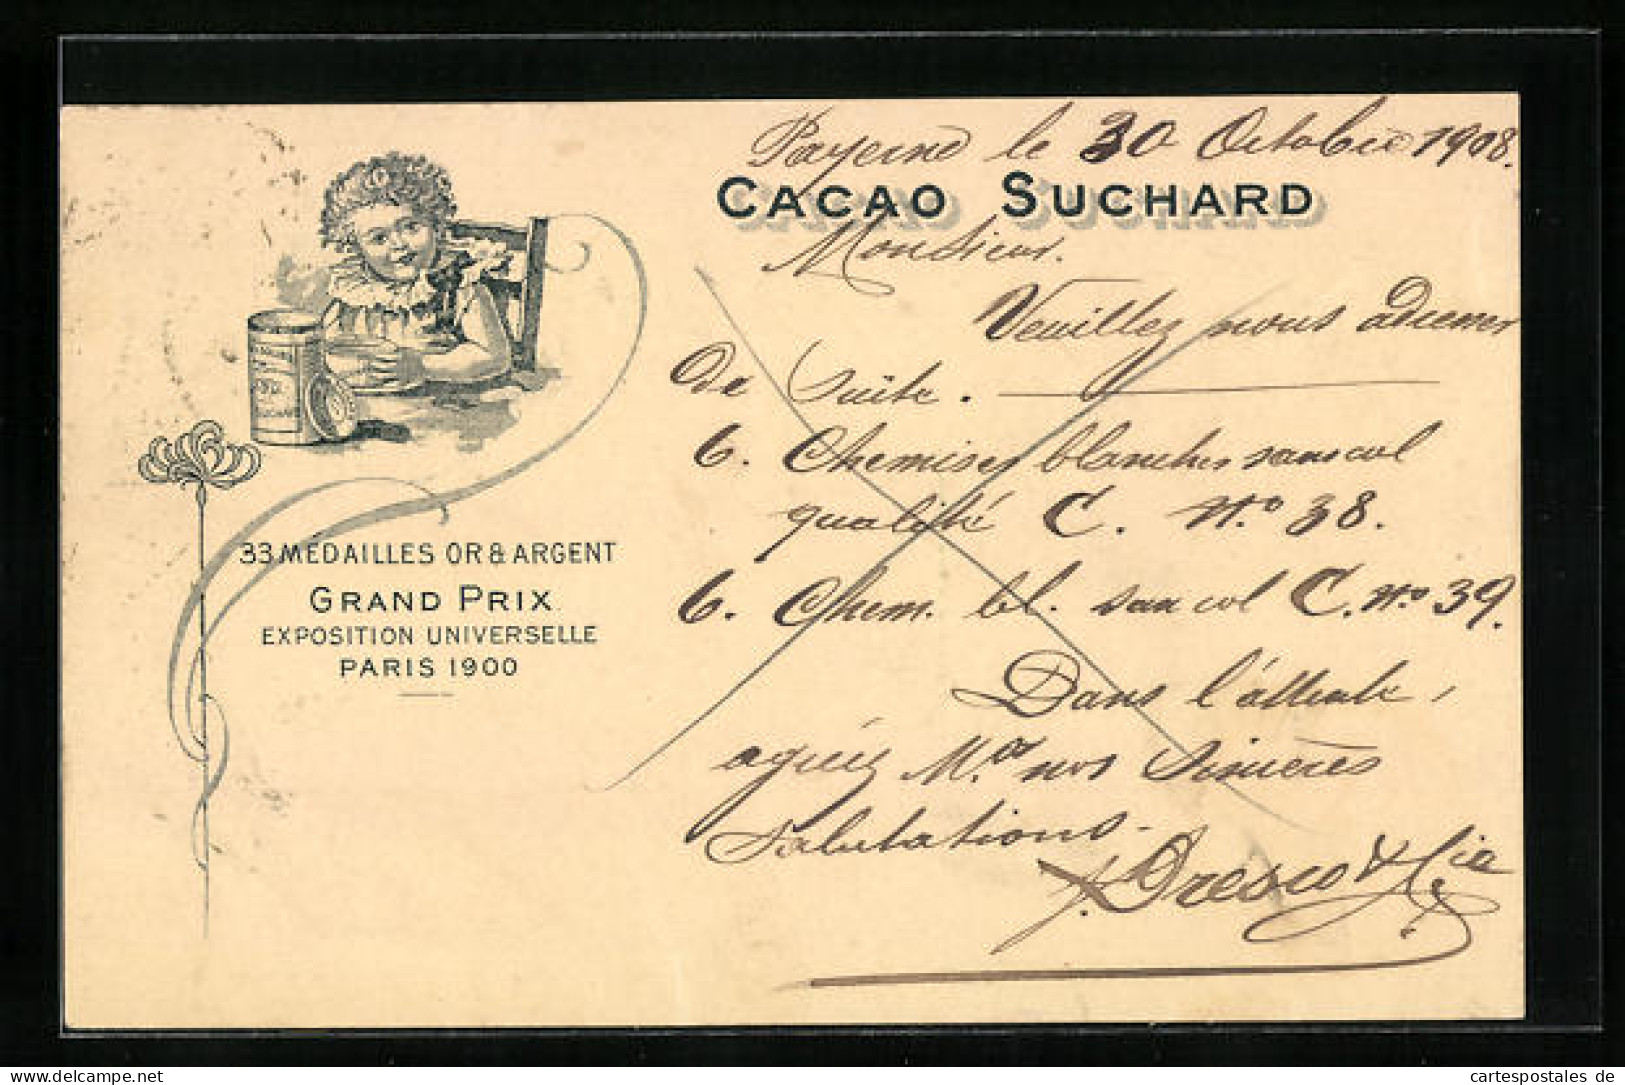 Payerne le 30 Octobre 1908.
CACAO SUCHARD
Monsieur.
Veuillez nous adresser
de suite.
6. Chemises blanches sans col
qualité C. No 38.
6. Chem. bl. sans col C. no 39.
Dans l'attente,
agréez Mr nos sincères
Salutations.
J. Dresco & Cie
SUCHARD
33 MEDAILLES OR & ARGENT
GRAND PRIX
EXPOSITION UNIVERSELLE
PARIS 1900
www.delcampe.net
cartespostales de